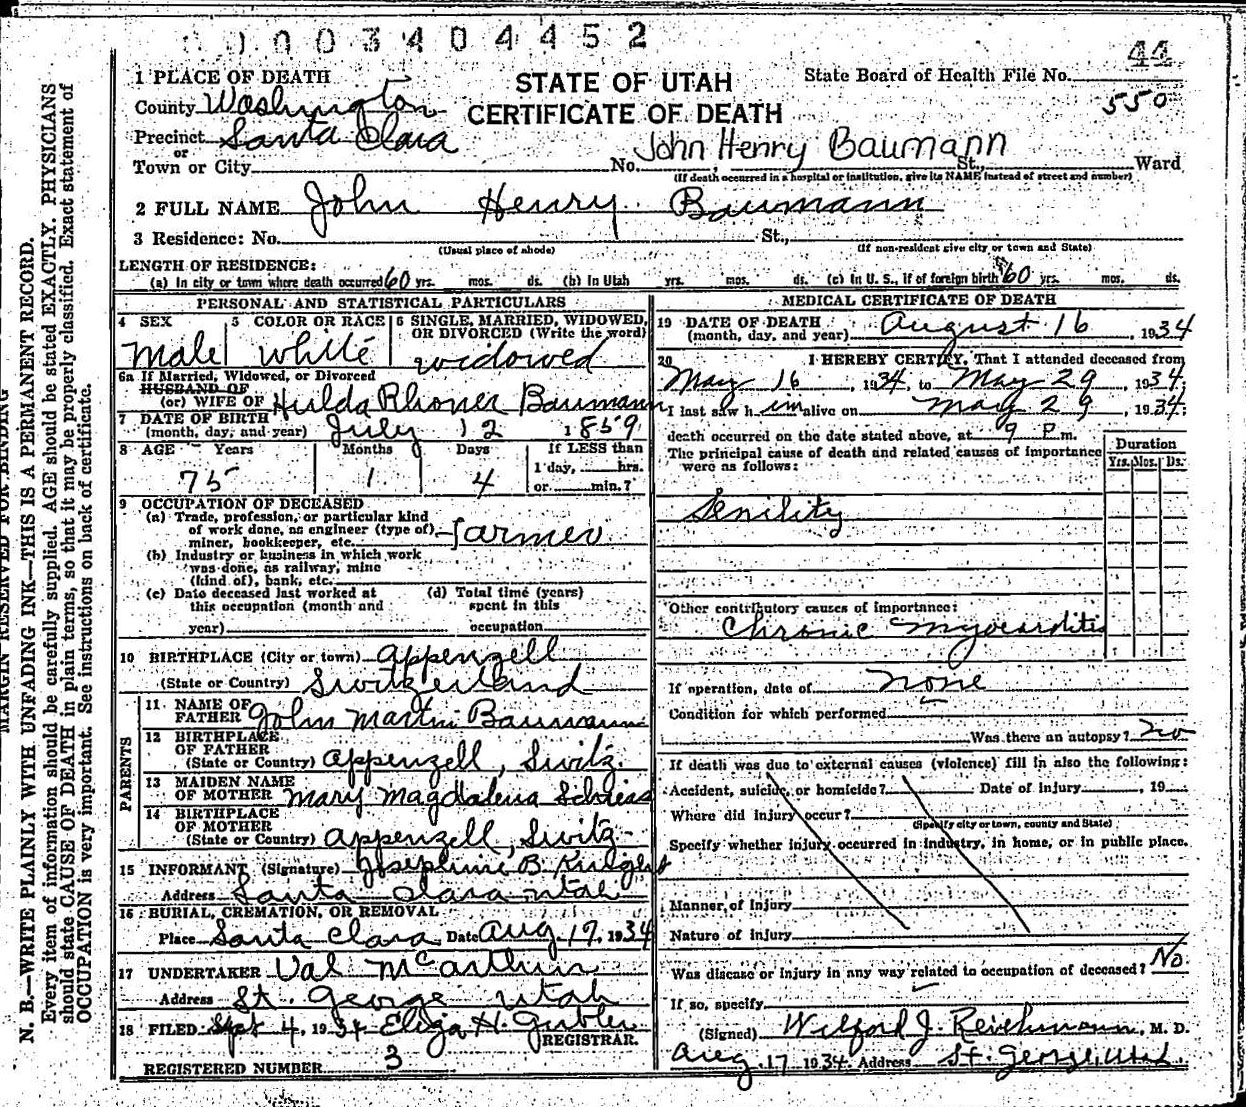 00003404452
44
1 PLACE OF DEATH
STATE OF UTAH
State Board of Health File No.
County Washington
CERTIFICATE OF DEATH
550
Precinct Santa Clara
or
Town or City
No. John Henry Baumann St., Ward
(If death occurred in a hospital or institution, give its NAME instead of street and number)
2 FULL NAME John Henry Baumann
3 Residence: No. St.,
(Usual place of abode) (If non-resident give city or town and State)
LENGTH OF RESIDENCE:
(a) In city or town where death occurred 60 yrs. mos. ds. (b) In Utah yrs. mos. ds. (c) In U. S., if of foreign birth 60 yrs. mos. ds.
PERSONAL AND STATISTICAL PARTICULARS
4 SEX 5 COLOR OR RACE 6 SINGLE, MARRIED, WIDOWED, OR DIVORCED (Write the word)
Male white widowed
6a If Married, Widowed, or Divorced
HUSBAND OF
(or) WIFE OF Hulda Rhoner Baumann
7 DATE OF BIRTH
(month, day, and year) July 12 1859
8 AGE Years Months Days If LESS than
1 day, hrs.
75 1 4 or min.?
9 OCCUPATION OF DECEASED
(a) Trade, profession, or particular kind
of work done, as engineer (type of),
miner, bookkeeper, etc. farmer
(b) Industry or business in which work
was done, as railway, mine
(kind of), bank, etc.
(c) Date deceased last worked at
this occupation (month and
year)
(d) Total time (years)
spent in this
occupation
10 BIRTHPLACE (City or town) Appenzell
(State or Country) Switzerland
PARENTS
11 NAME OF
FATHER John Martin Baumann
12 BIRTHPLACE
OF FATHER
(State or Country) Appenzell, Switz.
13 MAIDEN NAME
OF MOTHER Mary Magdalena Schiess
14 BIRTHPLACE
OF MOTHER
(State or Country) Appenzell, Switz-
15 INFORMANT (Signature) Josephine B. Knight
Address Santa Clara Utah
16 BURIAL, CREMATION, OR REMOVAL
Place Santa Clara Date Aug 17, 1934
17 UNDERTAKER Val McArthur
Address St. George Utah
18 FILED Sept 4, 1934 Eliza H. Gubler
REGISTRAR.
REGISTERED NUMBER 3
MEDICAL CERTIFICATE OF DEATH
19 DATE OF DEATH
(month, day, and year) August 16, 1934
20 I HEREBY CERTIFY, That I attended deceased from
May 16, 1934, to May 29, 1934;
I last saw h im alive on May 29, 1934;
death occurred on the date stated above, at 9 P.m.
The principal cause of death and related causes of importance
were as follows:
Duration
Yrs. Mos. Ds.
Senility
Other contributory causes of importance:
Chronic myocarditis
If operation, date of none
Condition for which performed
Was there an autopsy? no
If death was due to external causes (violence) fill in also the following:
Accident, suicide, or homicide? Date of injury, 19
Where did injury occur?
(Specify city or town, county and State)
Specify whether injury occurred in industry, in home, or in public place.
Manner of injury
Nature of injury
Was disease or injury in any way related to occupation of deceased? No.
If so, specify
(Signed) Wilford J. Reichmann, M. D.
Aug. 17 1934. Address St. George, Utah.
MARGIN RESERVED FOR BINDING
N. B.—WRITE PLAINLY WITH UNFADING INK—THIS IS A PERMANENT RECORD.
Every item of information should be carefully supplied. AGE should be stated EXACTLY. PHYSICIANS
should state CAUSE OF DEATH in plain terms, so that it may be properly classified. Exact statement of
OCCUPATION is very important. See instructions on back of certificate.